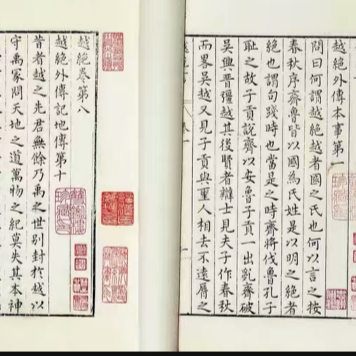 越絕外傳本事第一
問曰何謂越絕越者國之氏也何以言之按
春秋序齊魯皆以國為氏姓是以明之絕者
絕也謂句踐時也當是之時齊將伐魯孔子
恥之故子貢說齊以安魯子貢一出亂齊破
吳興晉彊越其後賢者辯士見夫子作春秋
而畧吳越又見子貢與聖人相去不遠脣之
越絕卷第八
越絕外傳記地傳第十
昔者越之先君無餘乃禹之世別封於越以
守禹冢問天地之道萬物之紀莫失其本神